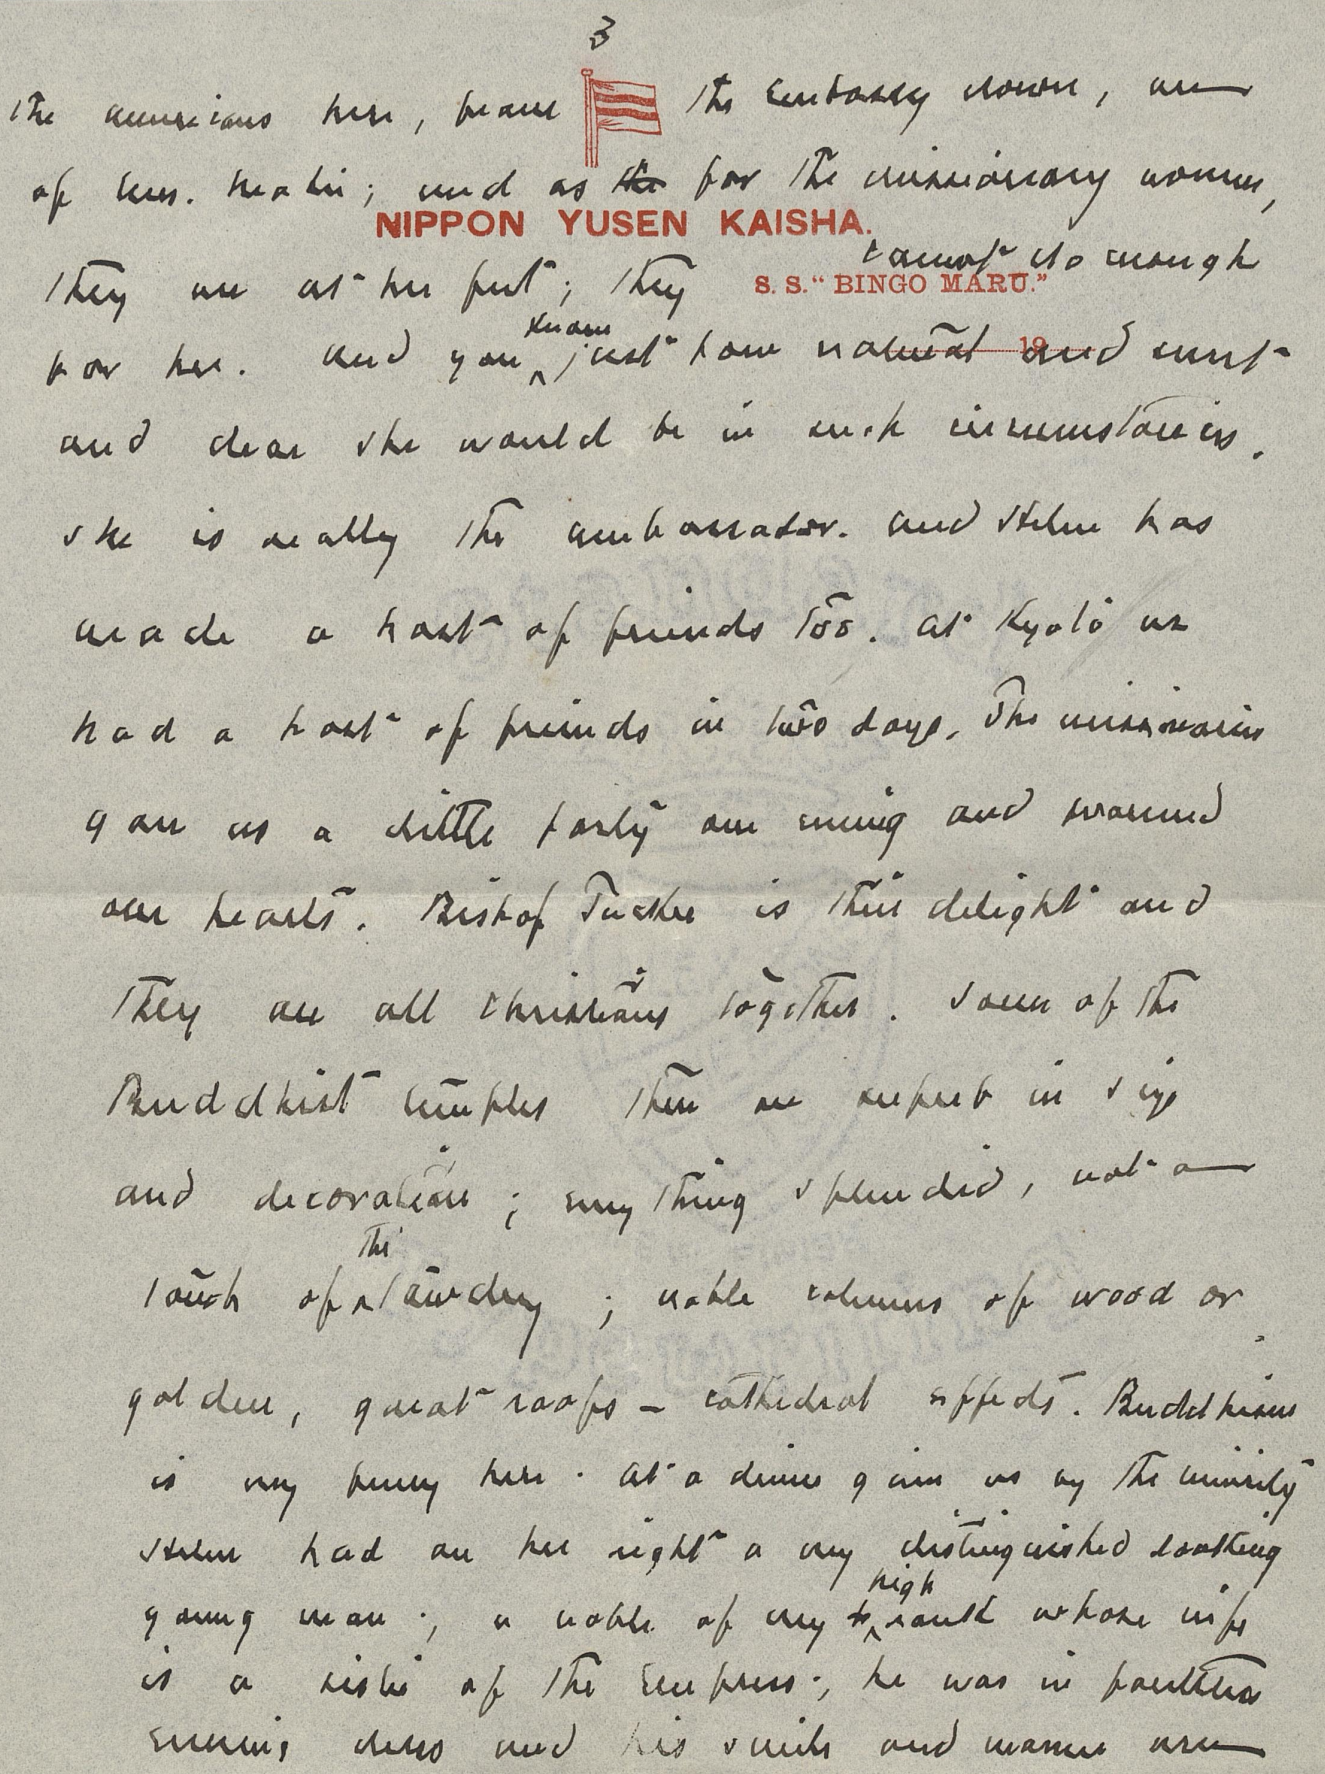 3
the americans here, from the Embassy down, are
of Mrs. ; and as the for the missionary women,
they are at her feet; they cannot do enough
NIPPON YUSEN KAISHA.
S. S. "BINGO MARU."
19
for her. And you know just how natural and sweet
and dear she would be in such circumstances.
She is really the ambassador. And Helen has
made a host of friends too. At Kyoto we
had a host of friends in two days. The missionaries
gave us a little party one evening and warmed
our hearts. Bishop Tucker is their delight and
they are all Christians together. Some of the
Buddhist temples there are superb in size
and decoration; everything splendid, not a
touch of the tawdry; noble columns of wood or
golden, great roofs – cathedral effects. Buddhism
is very here. At a dinner given us by the
Helen had on her right a very distinguished looking
young man; a noble of very high rank whose wife
is a sister of the Empress; he was in faultless
evening dress and his smile and manner were